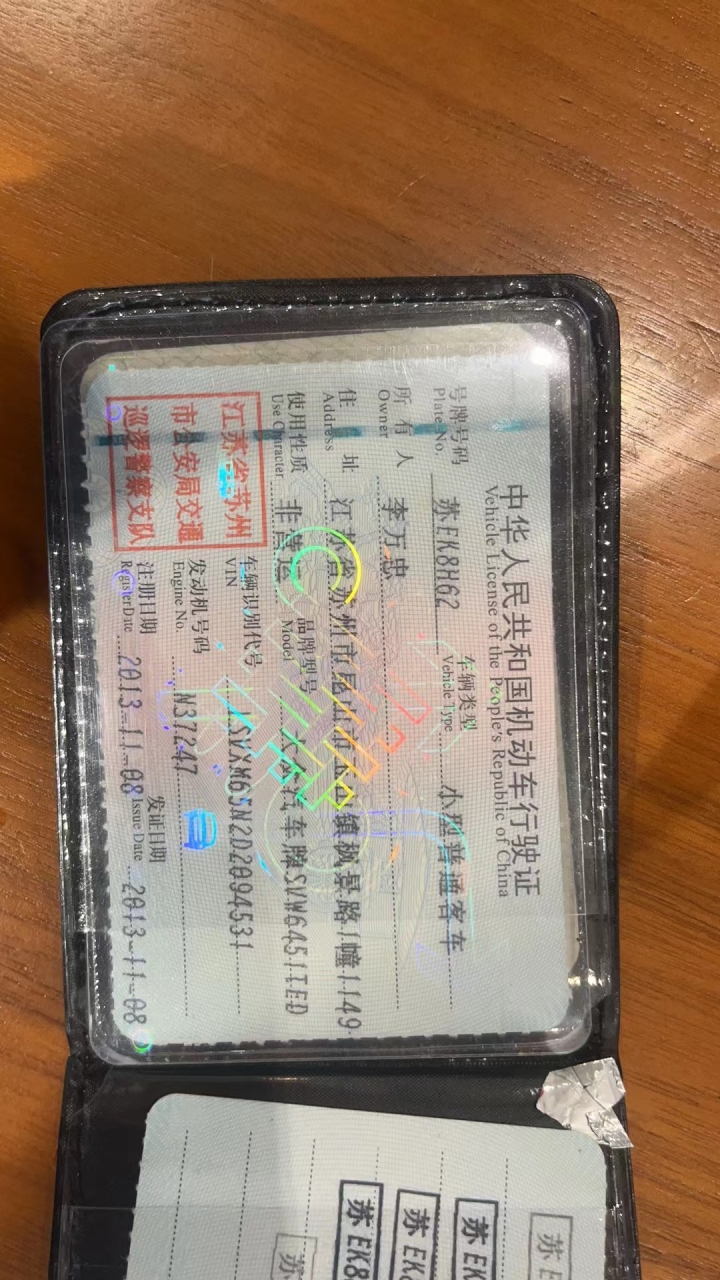 中华人民共和国机动车行驶证
Vehicle License of the People's Republic of China
号牌号码 苏EK8H62 车辆类型 小型普通客车
Plate No. Vehicle Type
所有人 李万忠
Owner
住址 江苏省苏州市昆山市 镇枫景路1幢1149
Address
使用性质 非营运 品牌型号 大众汽车牌SVW6451TED
Use Character Model
江苏省苏州
市公安局交通
巡逻警察支队
车辆识别代号 LSVXM65N2D2094531
VIN
发动机号码 N37247
Engine No.
注册日期 2013-11-08 发证日期 2013-11-08
Register Date Issue Date
苏E
苏EK
苏EK
苏EK8
苏